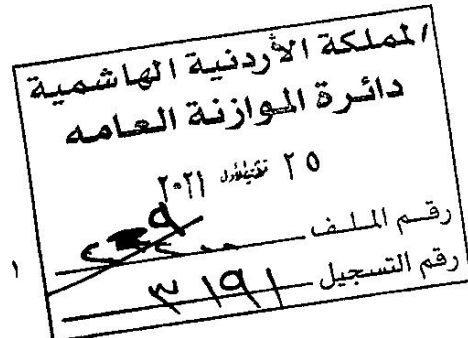 المملكة الأردنية الهاشمية
دائرة الموازنة العامه
٢٥ تشرين الأول ٢٠٢١
رقم الملف
رقم التسجيل ٣١٩١
١